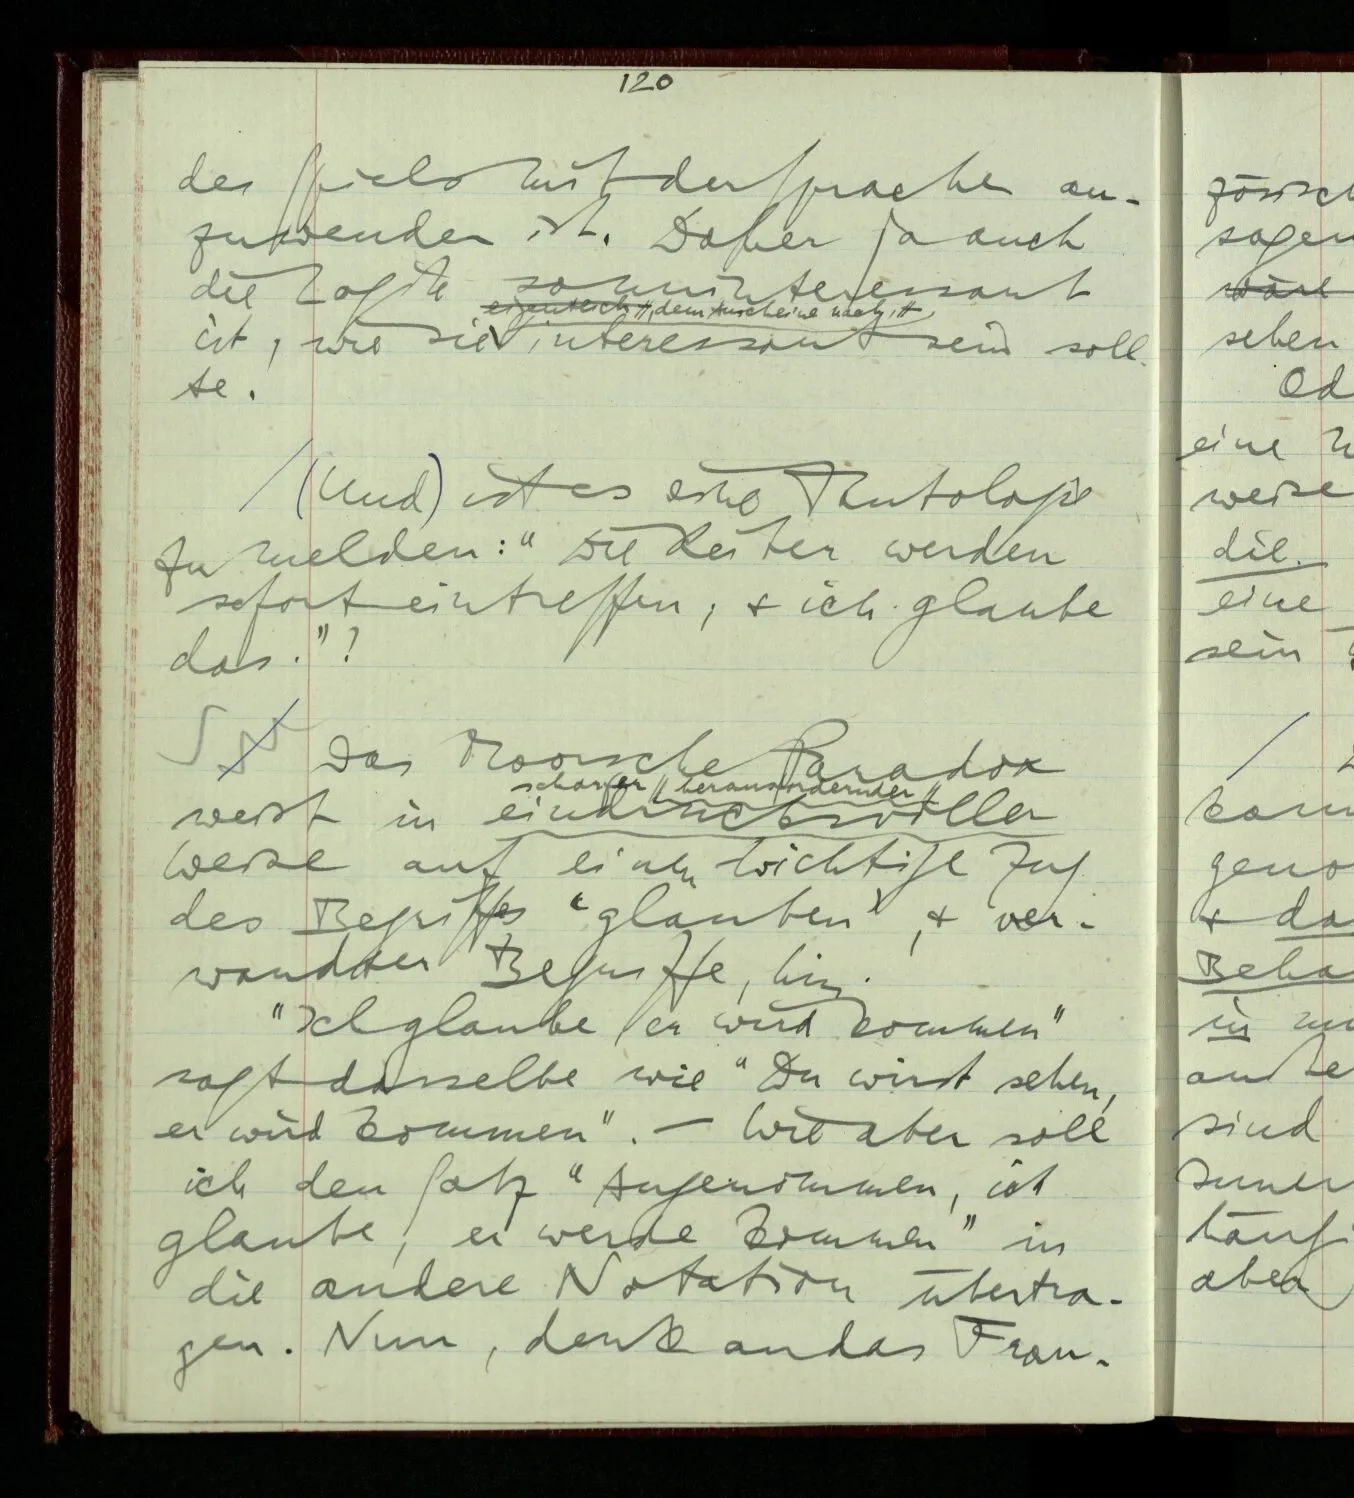 120
des Spiels mit der Sprache an-
zuwenden ist. Daher ja auch
die Logik so uninteressant
eigentlich, dem Anscheine nach,
ist, wie sie interessant sein soll-
te.
(Und) ist es eine Tautologie
zu melden: "Die Reiter werden
sofort eintreffen, & ich glaube
das."?
S Das Mooresche Paradox
scharfer herausfordernder
weist in eindrucksvoller
Weise auf einen wichtige Zug
des Begriffes 'glauben', & ver-
wandter Begriffe, hin.
"Ich glaube er wird kommen"
sagt dasselbe wie "Du wirst sehen,
er wird kommen". — Wie aber soll
ich den Satz "Angenommen, ich
glaube, er werde kommen" in
die andere Notation übertra-
gen. Nun, denk an das Fran-
zösisch
sagen
wäre
sehen
eine
weise
die
eine
sein
sind
aber